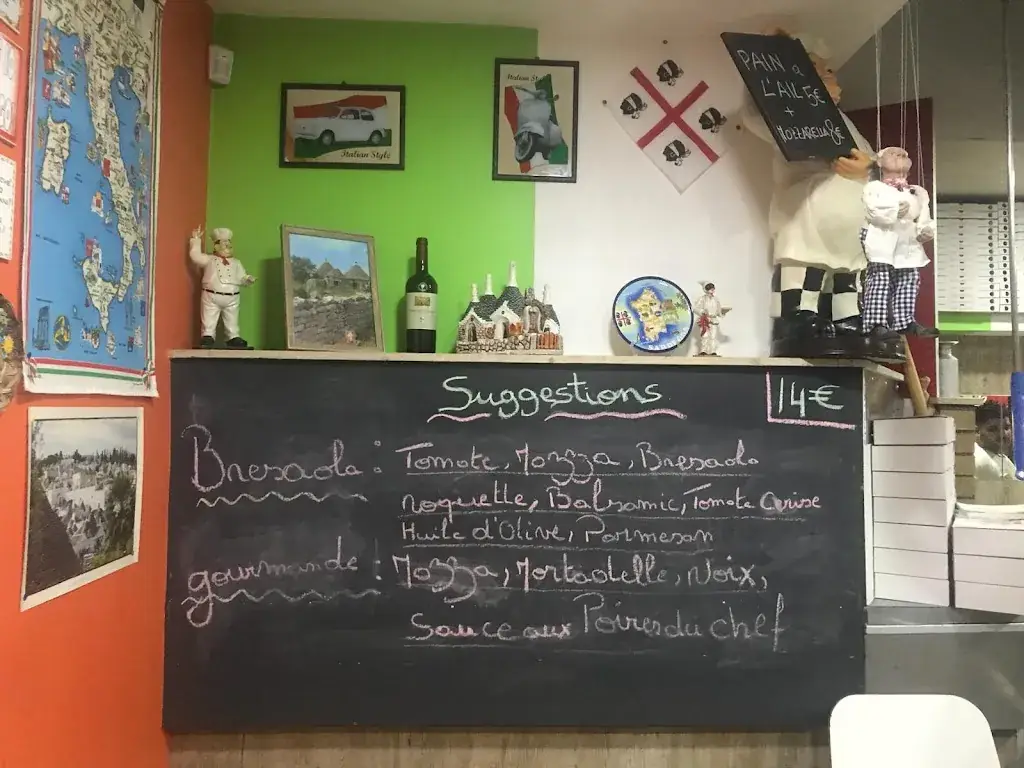 Italian Style
Italian Style
PAIN a
L'AIL 5€
+
MOZZARELLA
Suggestions
14€
Bresaola : Tomate, Mozza, Bresaola
roquette, Balsamic, Tomate Cerise
Huile d'Olive, Parmesan
gourmande : Mozza, Mortadelle, Noix,
Sauce aux Poires du chef